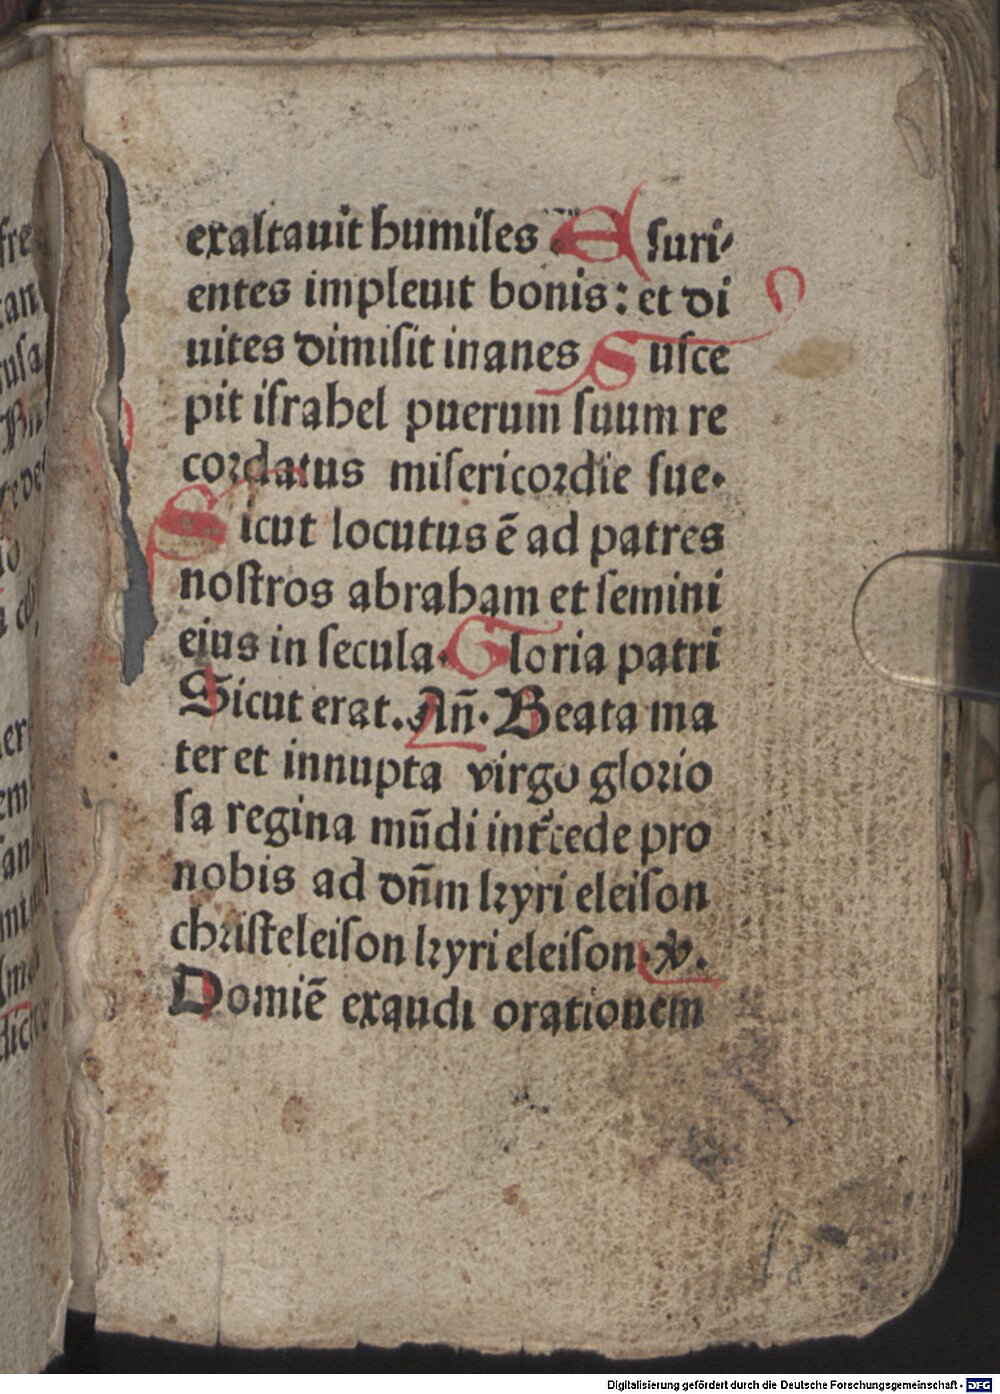 exaltauit humiles Eſuri-
entes impleuit bonis: et di
uites dimiſit inanes Suſce
pit iſrahel puerum ſuum re
cordatus miſericordie ſue.
Sicut locutus ē ad patres
noſtros abraham et ſemini
eius in ſecula. Gloria patri
Sicut erat. Añ. Beata ma
ter et innupta virgo glorio
ſa regina mūdi intcede pro
nobis ad dñm kyri eleiſon
chriſteleiſon kyri eleiſon. ℣.
Domiē exaudi orationem
18
Digitalisierung gefördert durch die Deutsche Forschungsgemeinschaft - DFG